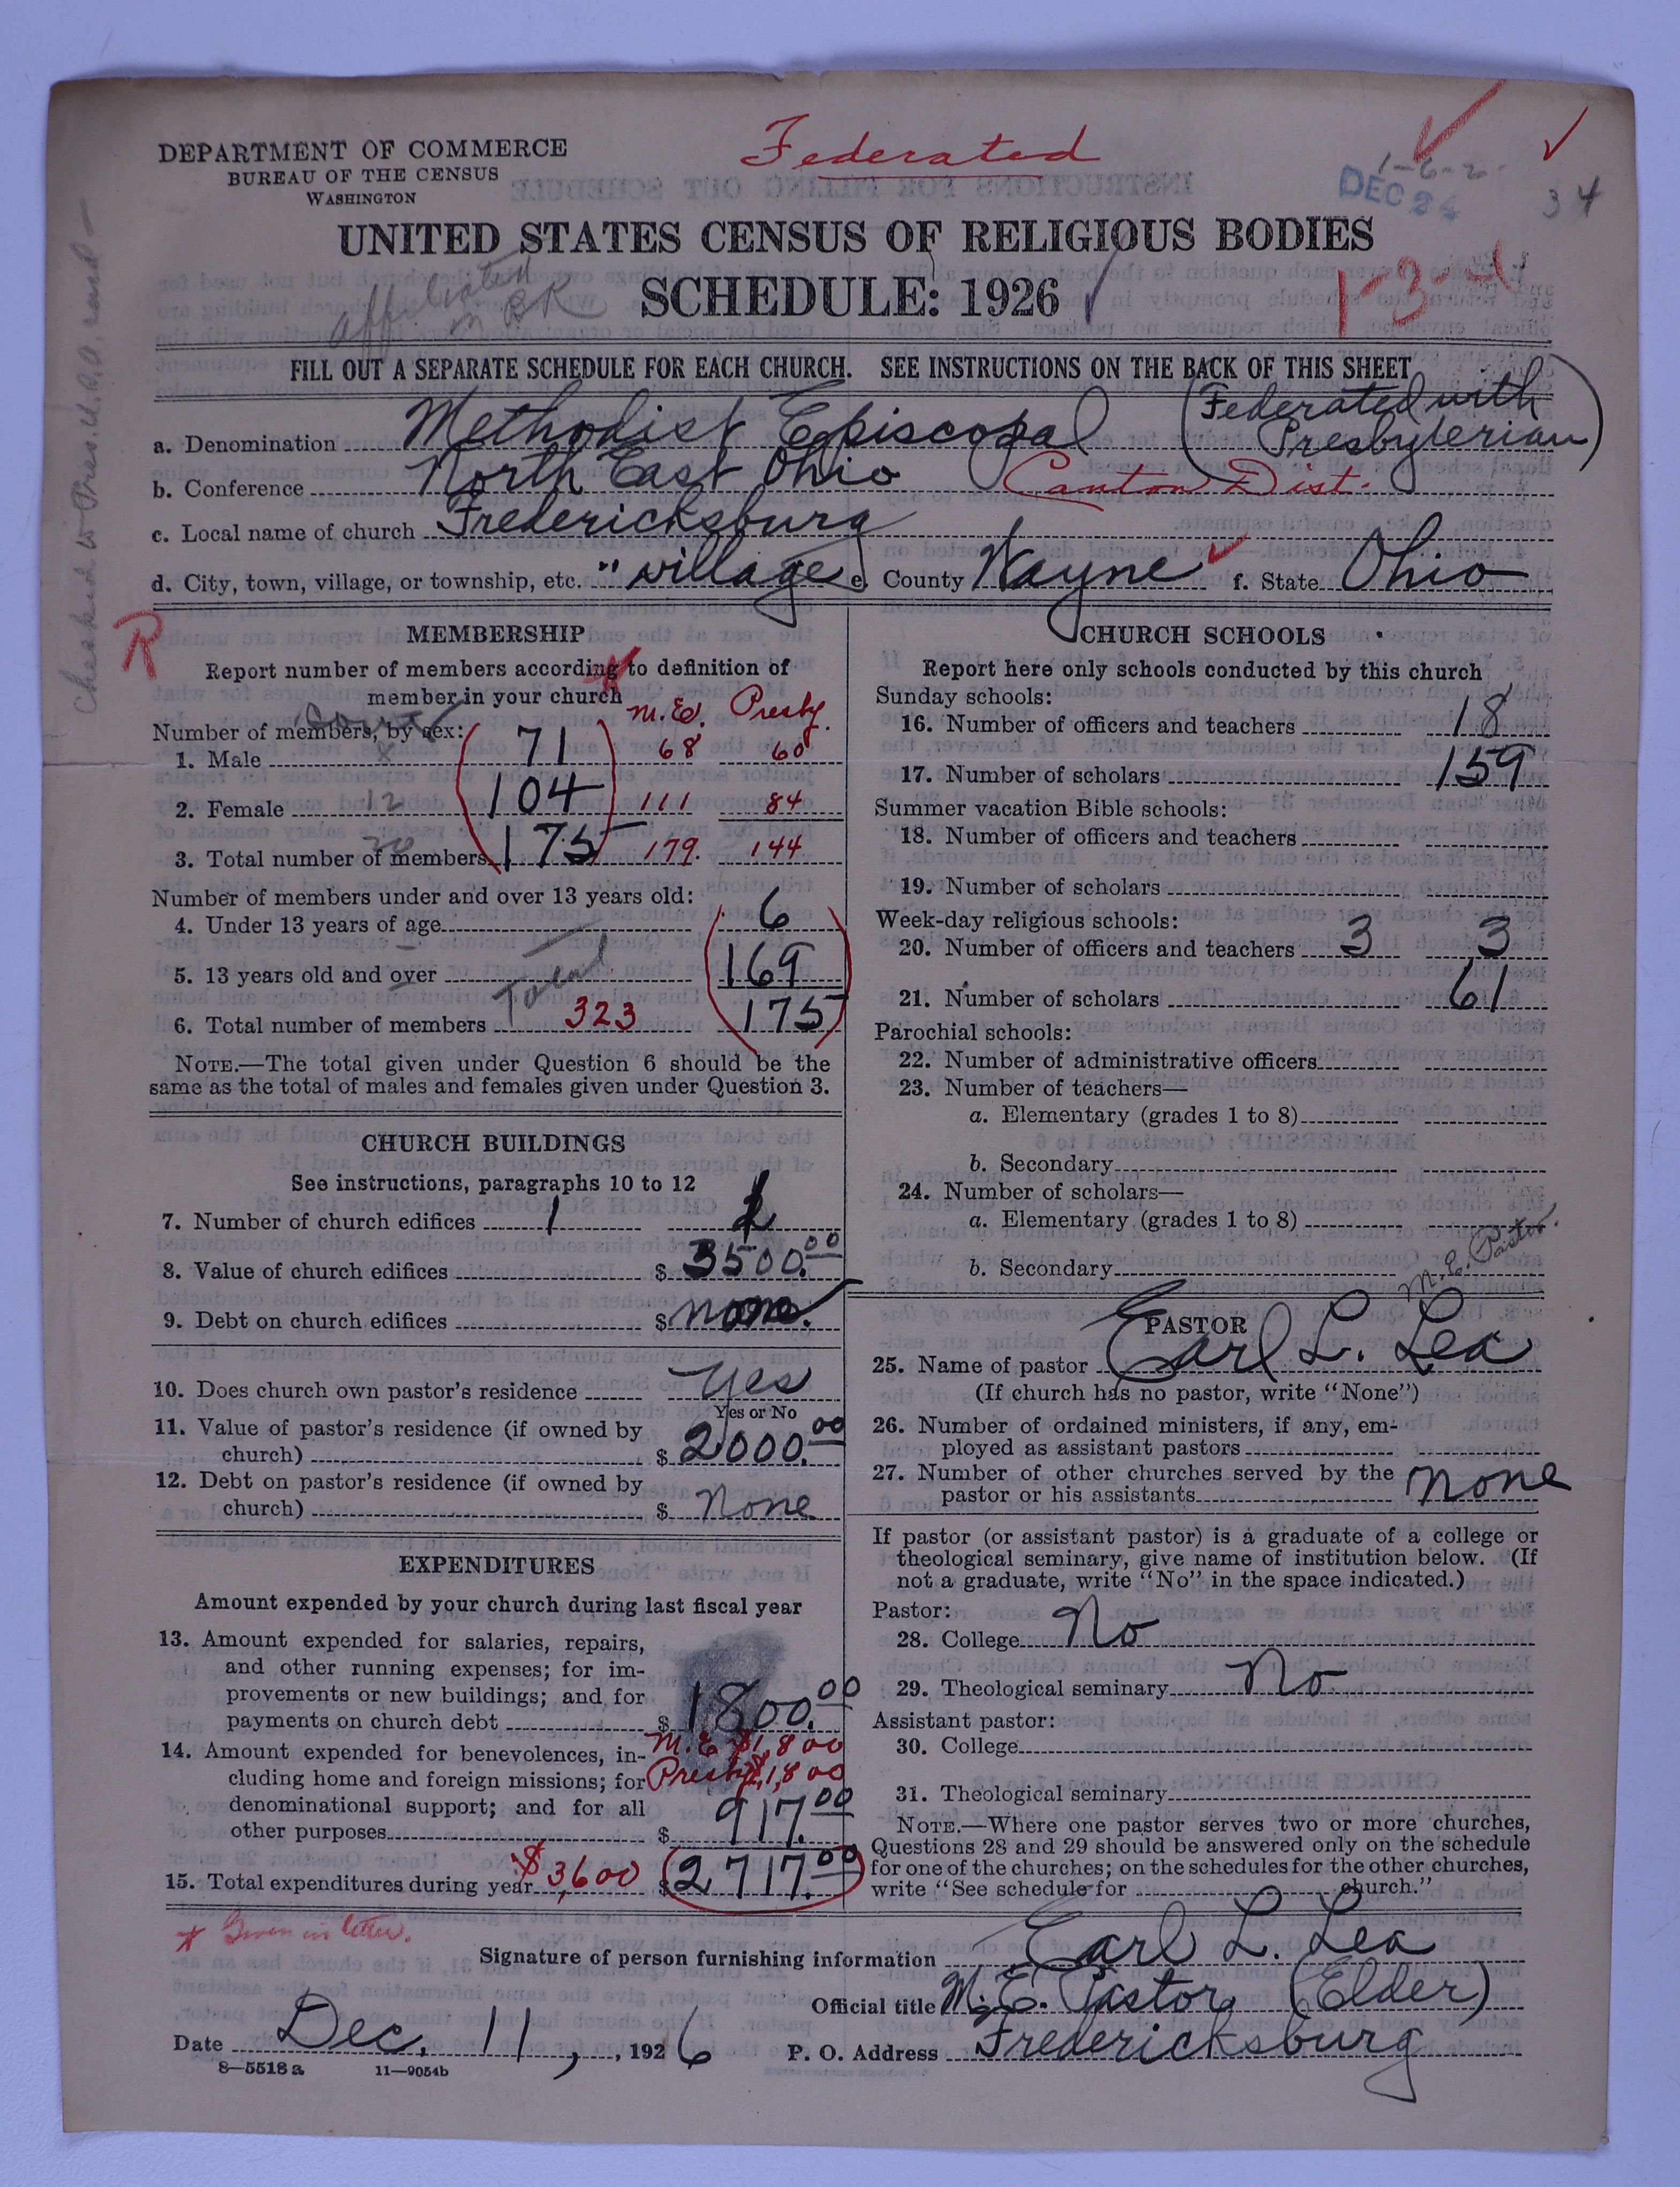 Federated
DEPARTMENT OF COMMERCE
BUREAU OF THE CENSUS
WASHINGTON
DEC 24
34
UNITED STATES CENSUS OF RELIGIOUS BODIES
SCHEDULE: 1926
1-3-4
FILL OUT A SEPARATE SCHEDULE FOR EACH CHURCH. SEE INSTRUCTIONS ON THE BACK OF THIS SHEET
a. Denomination Methodist Episcopal (Federated with Presbyterian)
b. Conference North East Ohio Canton Dist.
c. Local name of church Fredericksburg
d. City, town, village, or township, etc. " village e. County Wayne f. State Ohio
R
MEMBERSHIP
Report number of members according to definition of
member in your church
M.E. Presby.
Number of members, by sex:
1. Male 71 68 60
2. Female 12 104 111 84
3. Total number of members 20 175 179. 144
Number of members under and over 13 years old:
4. Under 13 years of age 6
5. 13 years old and over 169
6. Total number of members Total 323 175
NOTE.—The total given under Question 6 should be the
same as the total of males and females given under Question 3.
CHURCH BUILDINGS
See instructions, paragraphs 10 to 12
7. Number of church edifices 1 1
8. Value of church edifices $ 3500.00
9. Debt on church edifices $ none.
10. Does church own pastor's residence Yes
Yes or No
11. Value of pastor's residence (if owned by
church) $ 2000.00
12. Debt on pastor's residence (if owned by
church) $ None
EXPENDITURES
Amount expended by your church during last fiscal year
13. Amount expended for salaries, repairs,
and other running expenses; for im-
provements or new buildings; and for
payments on church debt $ 1800.00
M.E. $1,800
Presby. 1,800
14. Amount expended for benevolences, in-
cluding home and foreign missions; for
denominational support; and for all
other purposes $ 917.00
15. Total expenditures during year $3,600 $ 2717.00
CHURCH SCHOOLS
Report here only schools conducted by this church
Sunday schools:
16. Number of officers and teachers 18
17. Number of scholars 159
Summer vacation Bible schools:
18. Number of officers and teachers
19. Number of scholars
Week-day religious schools:
20. Number of officers and teachers 3 3
21. Number of scholars 61
Parochial schools:
22. Number of administrative officers
23. Number of teachers—
a. Elementary (grades 1 to 8)
b. Secondary
24. Number of scholars—
a. Elementary (grades 1 to 8)
b. Secondary
M.E. Pastor.
PASTOR
25. Name of pastor Earl L. Lea
(If church has no pastor, write "None")
26. Number of ordained ministers, if any, em-
ployed as assistant pastors
27. Number of other churches served by the
pastor or his assistants None
If pastor (or assistant pastor) is a graduate of a college or
theological seminary, give name of institution below. (If
not a graduate, write "No" in the space indicated.)
Pastor:
28. College No
29. Theological seminary No
Assistant pastor:
30. College
31. Theological seminary
NOTE.—Where one pastor serves two or more churches,
Questions 28 and 29 should be answered only on the schedule
for one of the churches; on the schedules for the other churches,
write "See schedule for church."
* Given in letter.
Signature of person furnishing information Earl L. Lea
Official title M.E. Pastor (Elder)
Date Dec. 11, 1926 P. O. Address Fredericksburg
8—5518 a 11—9054b